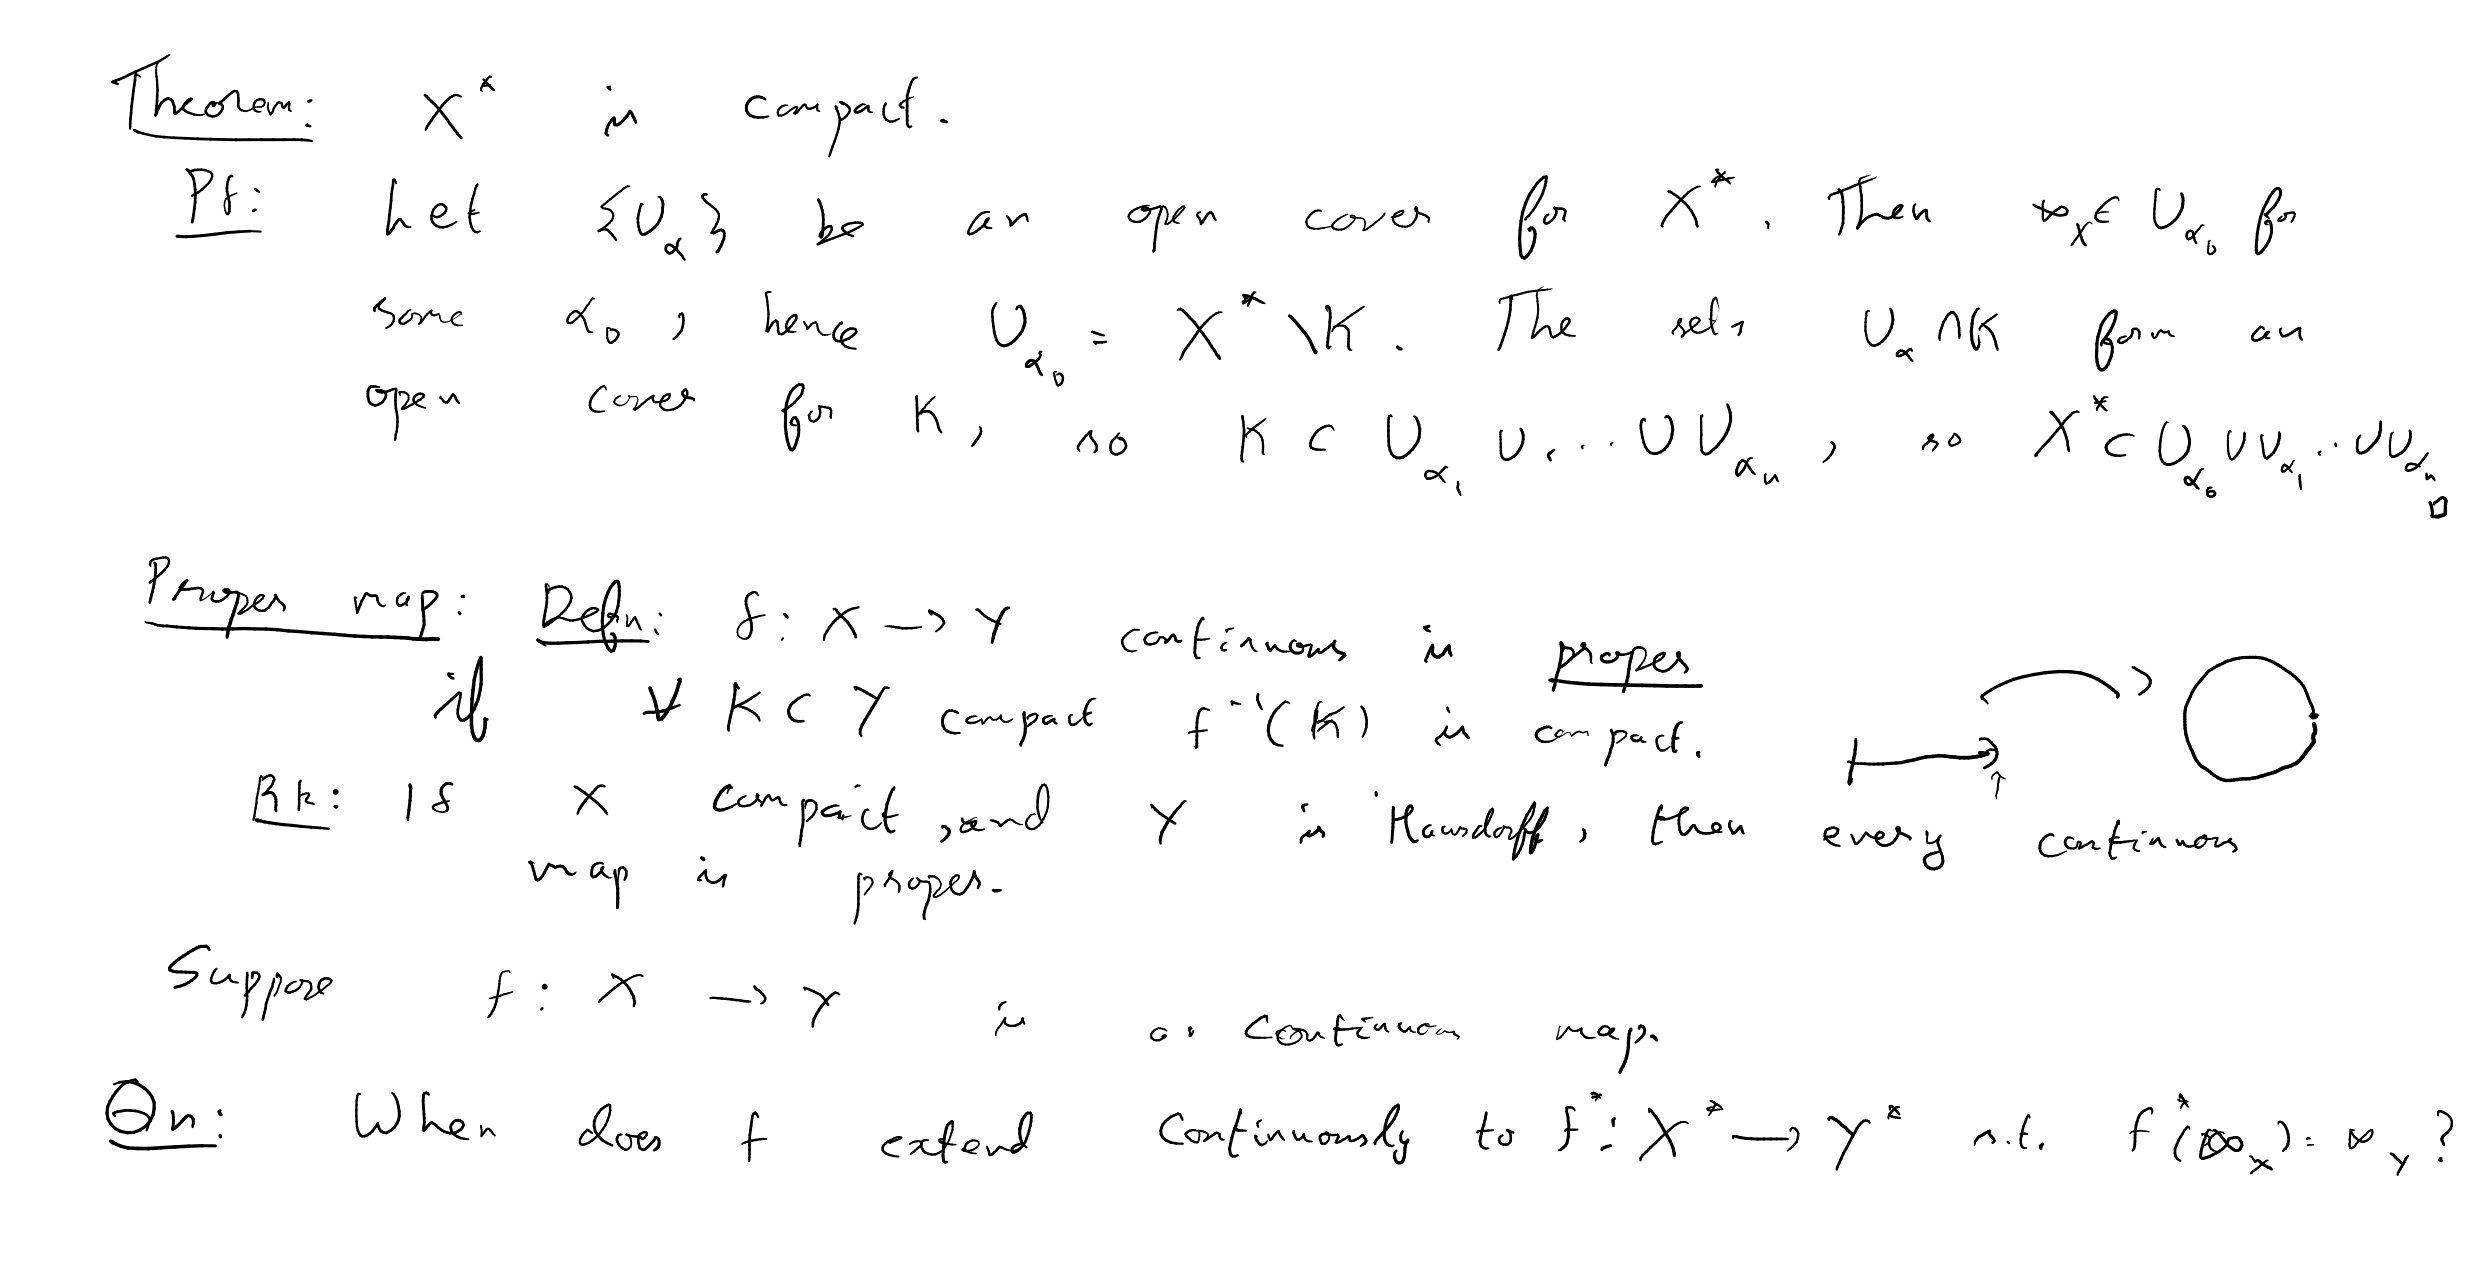 Theorem: X* is compact.
Pf: Let {U_α} be an open cover for X*. Then ∞_X ∈ U_α₀ for
some α₀, hence U_α₀ = X* \ K. The sets U_α ∩ K form an
open cover for K, so K ⊂ U_α₁ ∪ ... ∪ U_αₙ, so X* ⊂ U_α₀ ∪ U_α₁ .. ∪ U_αₙ □
Proper map: Defn: f: X → Y continuous is proper
if ∀ K ⊂ Y compact f⁻¹(K) is compact.
Rk: If X compact, and Y is Hausdorff, then every continuous
map is proper.
Suppose f: X → Y is a continuous map.
Qn: When does f extend continuously to f*: X* → Y* s.t. f*(∞_X) = ∞_Y?